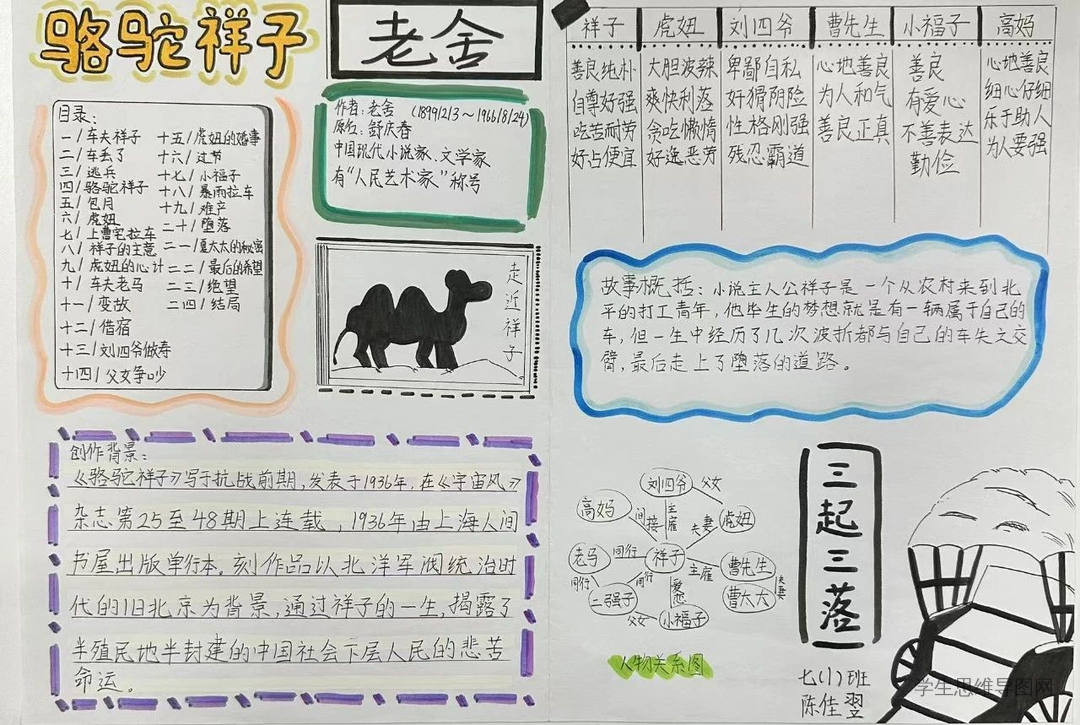 骆驼祥子
老舍
目录:
一/车夫祥子
二/车丢了
三/逃兵
四/骆驼祥子
五/包月
六/虎妞
七/上曹宅拉车
八/祥子的主意
九/虎妞的心计
十/车夫老马
十一/变故
十二/借宿
十三/刘四爷做寿
十四/父女争吵
十五/虎妞的婚事
十六/过节
十七/小福子
十八/暴雨拉车
十九/难产
二十/堕落
二一/夏太太的秘密
二二/最后的希望
二三/绝望
二四/结局
作者:老舍 (1899/2/3~1966/8/24)
原名:舒庆春
中国现代小说家、文学家
有“人民艺术家”称号
走近祥子
祥子 虎妞 刘四爷 曹先生 小福子 高妈
善良纯朴 大胆泼辣 卑鄙自私 心地善良 善良 心地善良
自尊好强 爽快利落 奸猾阴险 为人和气 有爱心 细心仔细
吃苦耐劳 贪吃懒惰 性格刚强 善良正真 不善表达 乐于助人
好占便宜 好逸恶劳 残忍霸道 勤俭 为人要强
故事概括:小说主人公祥子是一个从农村来到北
平的打工青年,他毕生的梦想就是有一辆属于自己的
车,但一生中经历了几次波折都与自己的车失之交
臂,最后走上了堕落的道路。
创作背景:
《骆驼祥子》写于抗战前期,发表于1936年,在《宇宙风》
杂志第25至48期上连载,1936年由上海人间
书屋出版单行本。刻作品以北洋军阀统治时
代的旧北京为背景,通过祥子的一生,揭露了
半殖民地半封建的中国社会下层人民的悲苦
命运。
刘四爷 父女
高妈 间接 主雇 夫妻 虎妞
老马 同行 祥子 主雇 曹先生
同行 同行 爱恋 曹太太 夫妻
二强子 父女 小福子
人物关系图
三起三落
七(1)班
陈佳翌
学生思维导图网